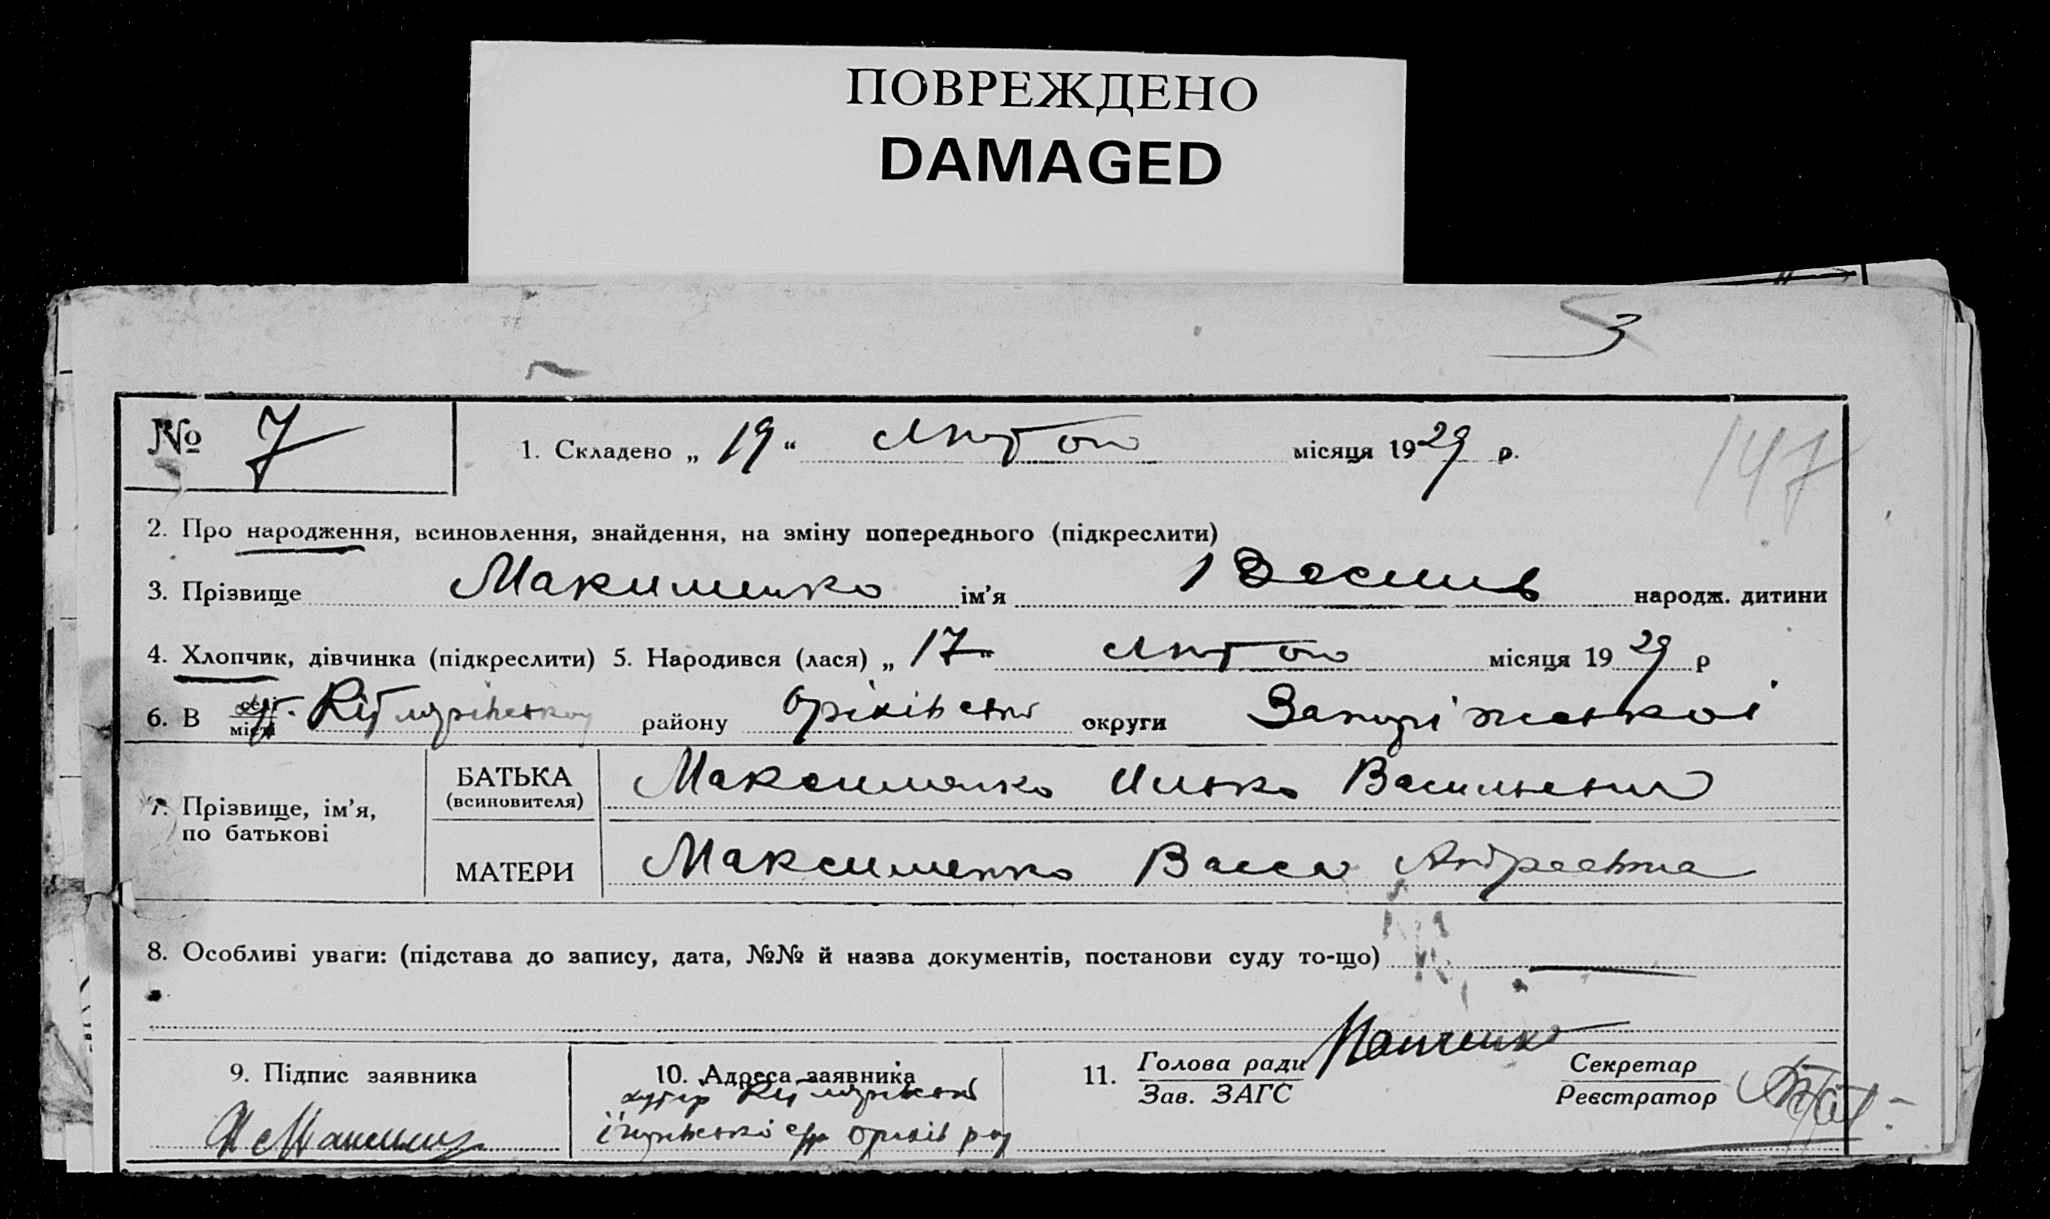 ПОВРЕЖДЕНО
DAMAGED
3
№ 7
1. Складено „ 19 “ Лютого місяця 1929 р.
147
2. Про народження, всиновлення, знайдення, на зміну попереднього (підкреслити)
3. Прізвище Макименко ім’я Василь народж. дитини
4. Хлопчик, дівчинка (підкреслити) 5. Народився (лася) „ 17 “ Лютого місяця 1929 р
6. В селі місті району Оріхівсько округи Запоріжської
7. Прізвище, ім’я, по батькові
БАТЬКА (всиновителя) Максименко Илько Васильевич
МАТЕРИ Максименко Васса Андреевна
8. Особливі уваги: (підстава до запису, дата, №№ й назва документів, постанови суду то-що)
9. Підпис заявника
10. Адреса заявника
хутір
с/р оріхів рай
11. Голова ради Панченко
Зав. ЗАГС
Секретар
Реєстратор